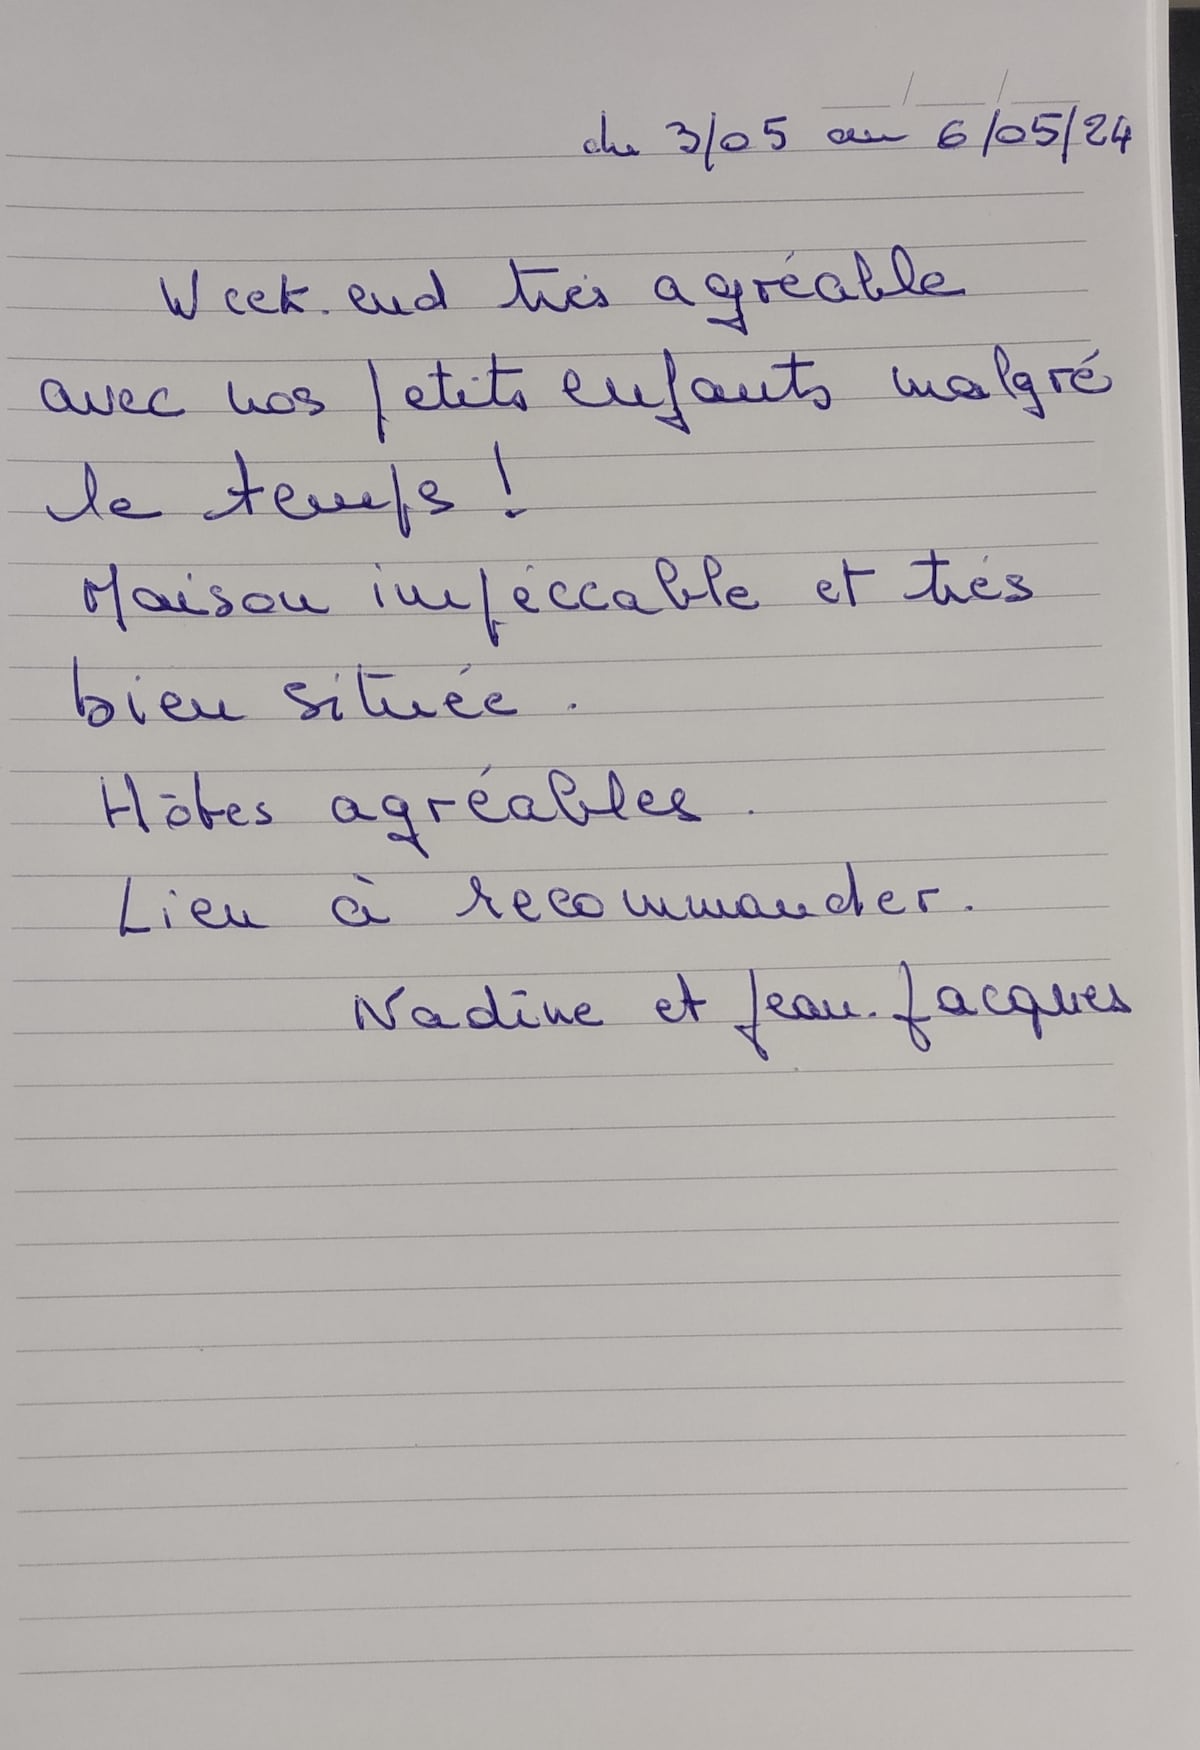 du 3/05 au 6/05/24
Week-end très agréable
avec nos petits enfants malgré
le temps !
Maison impéccable et très
bien située.
Hôtes agréables.
Lieu à recommander.
Nadine et Jean-Jacques